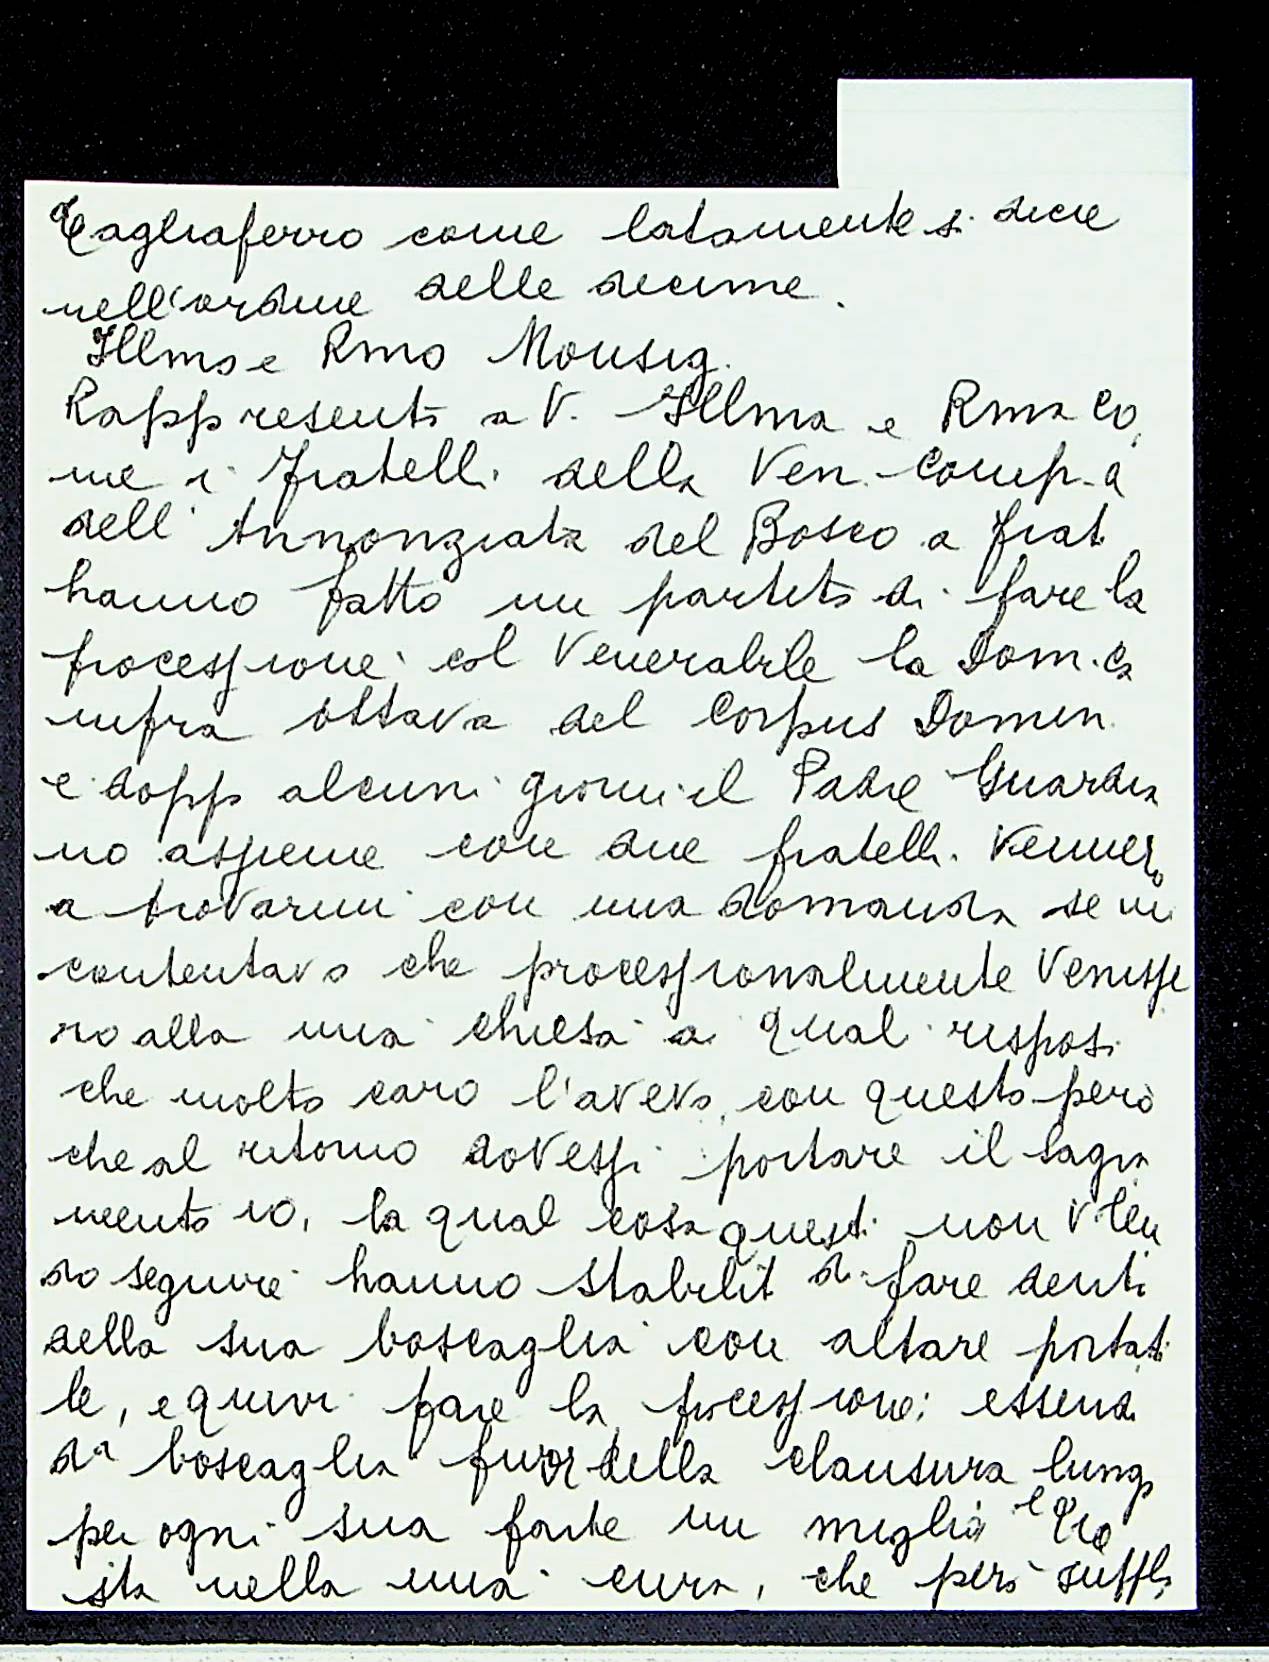 Tagliaferro come latamente si dice
nell'ordine delle decime.
Illmo e Rmo Monsig.
Rappresento a V. Illma e Rma Co,
me i fratelli della Ven. Comp.a
dell'Annonziata del Bosco a frat
hanno fatto un partito di fare la
processione col Venerabile la Dom.ca
infra ottava del Corpus Domin
e dopp alcuni giorni il Padre Guardia
no assieme con due fratelli vennero
a trovarmi con una domanda se mi
contentavo che processionalmente venisse
ro alla mia chiesa ai quali risposi
che molto caro l'avevo, con questo però
che al ritorno dovessi portare il sagra
mento io, la qual cosa questi non vlen
do seguire hanno stabilit di fare denti
della sua boscaglia con altare portati
le, e quivi fare la processione; essend
da boscaglia fuor della clausura lung
per ogni sua parte un miglio e
sita nella mia cura, che però suppl,